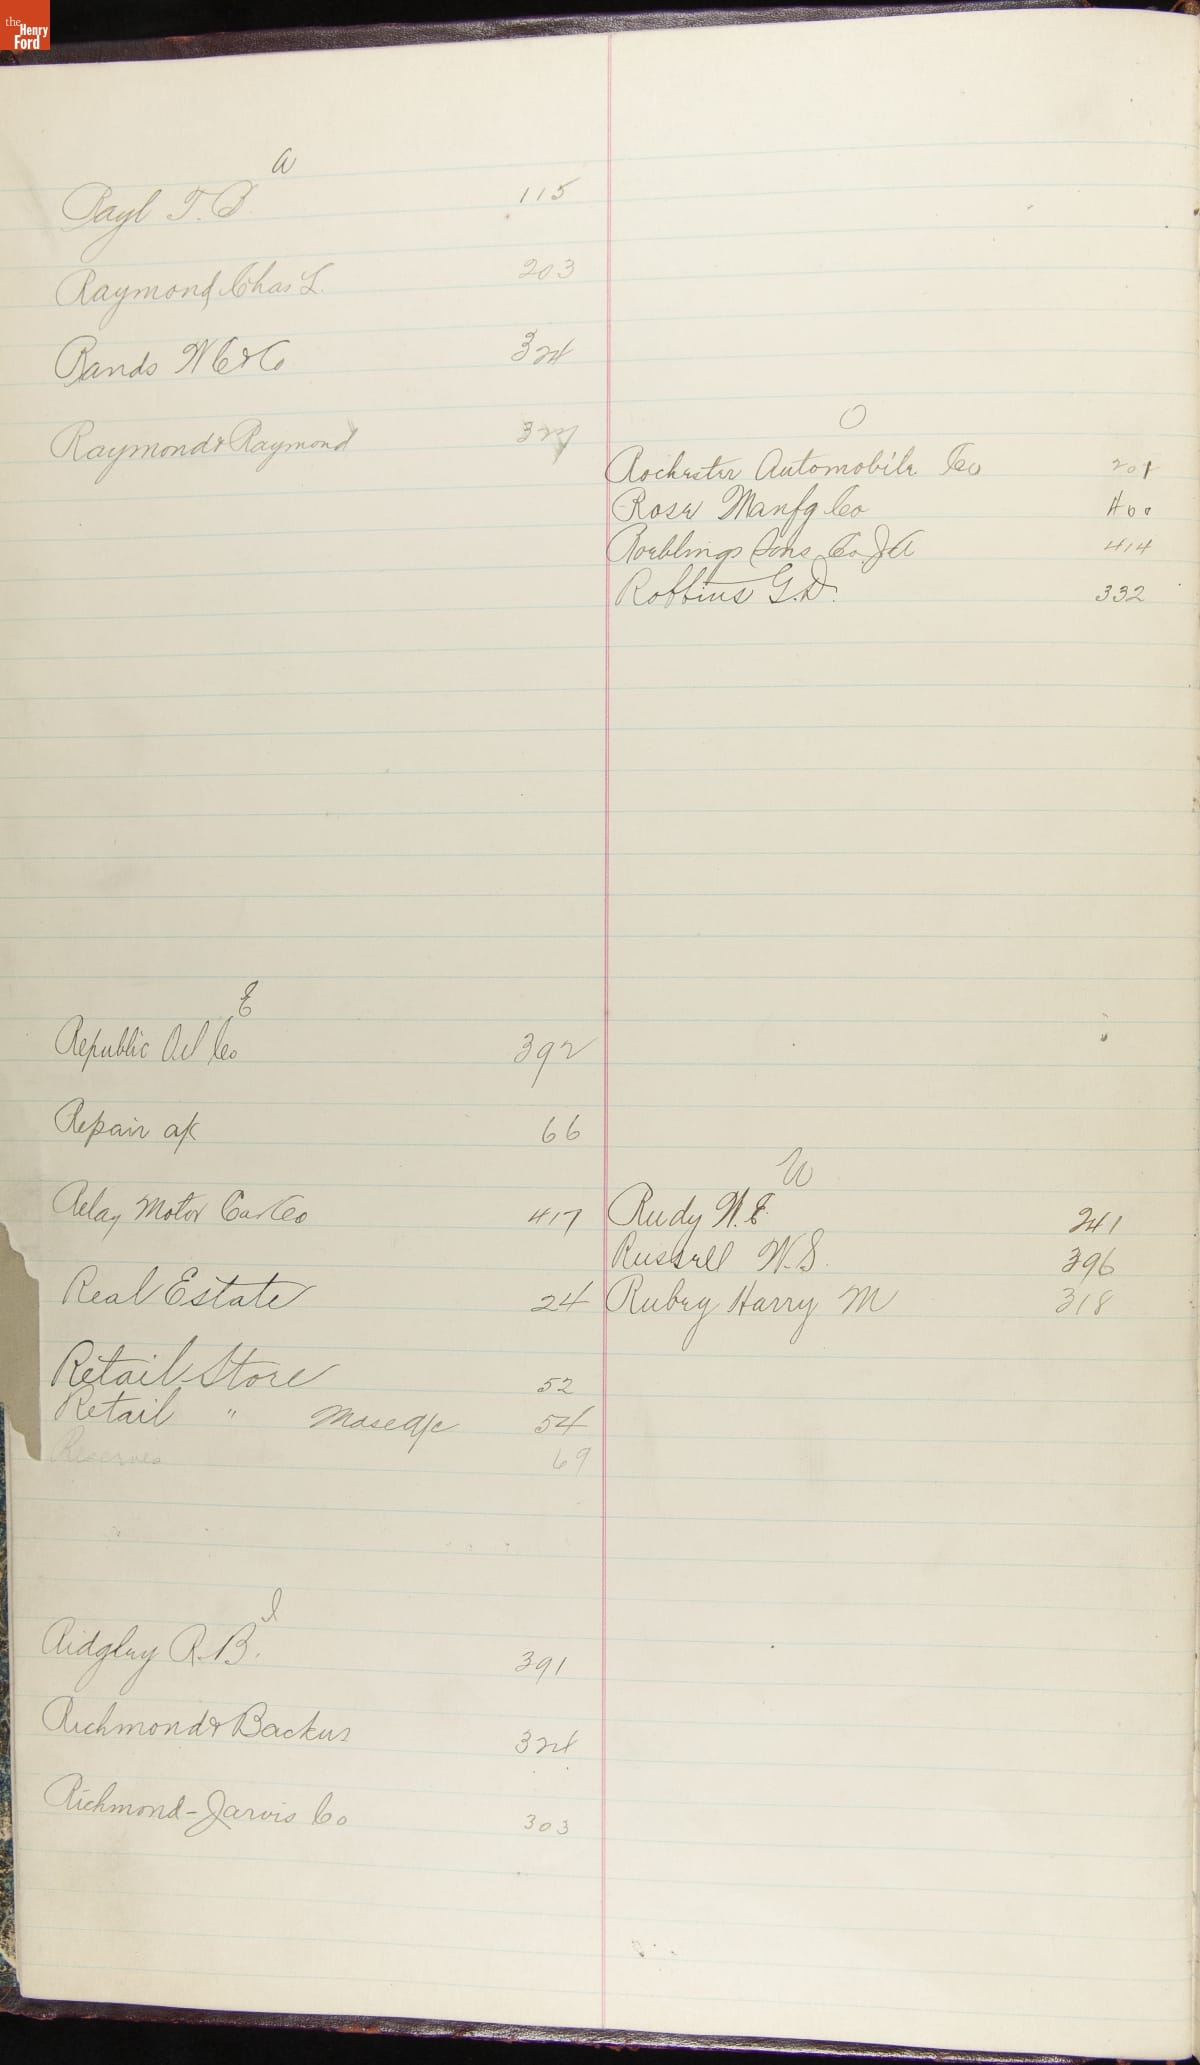 the Henry Ford
a
Rayl T. B. 115
Raymond, Chas L. 203
Rands W C & Co 324
Raymond & Raymond 327
E
Republic Oil Co 392
Repair a/c 66
Relay Motor Car Co 417
Real Estate 24
Retail Store 52
Retail " Mdse a/c 54
Reserves 69
I
Ridgley R. B. 391
Richmond & Backus 324
Richmond-Jarvis Co 303
O
Rochester Automobile Co 201
Rose Manfg Co 400
Roeblings Sons Co J A 414
Robbins G. D. 332
U
Rudy W. E. 241
Russell W. S. 396
Rubey Harry M 318